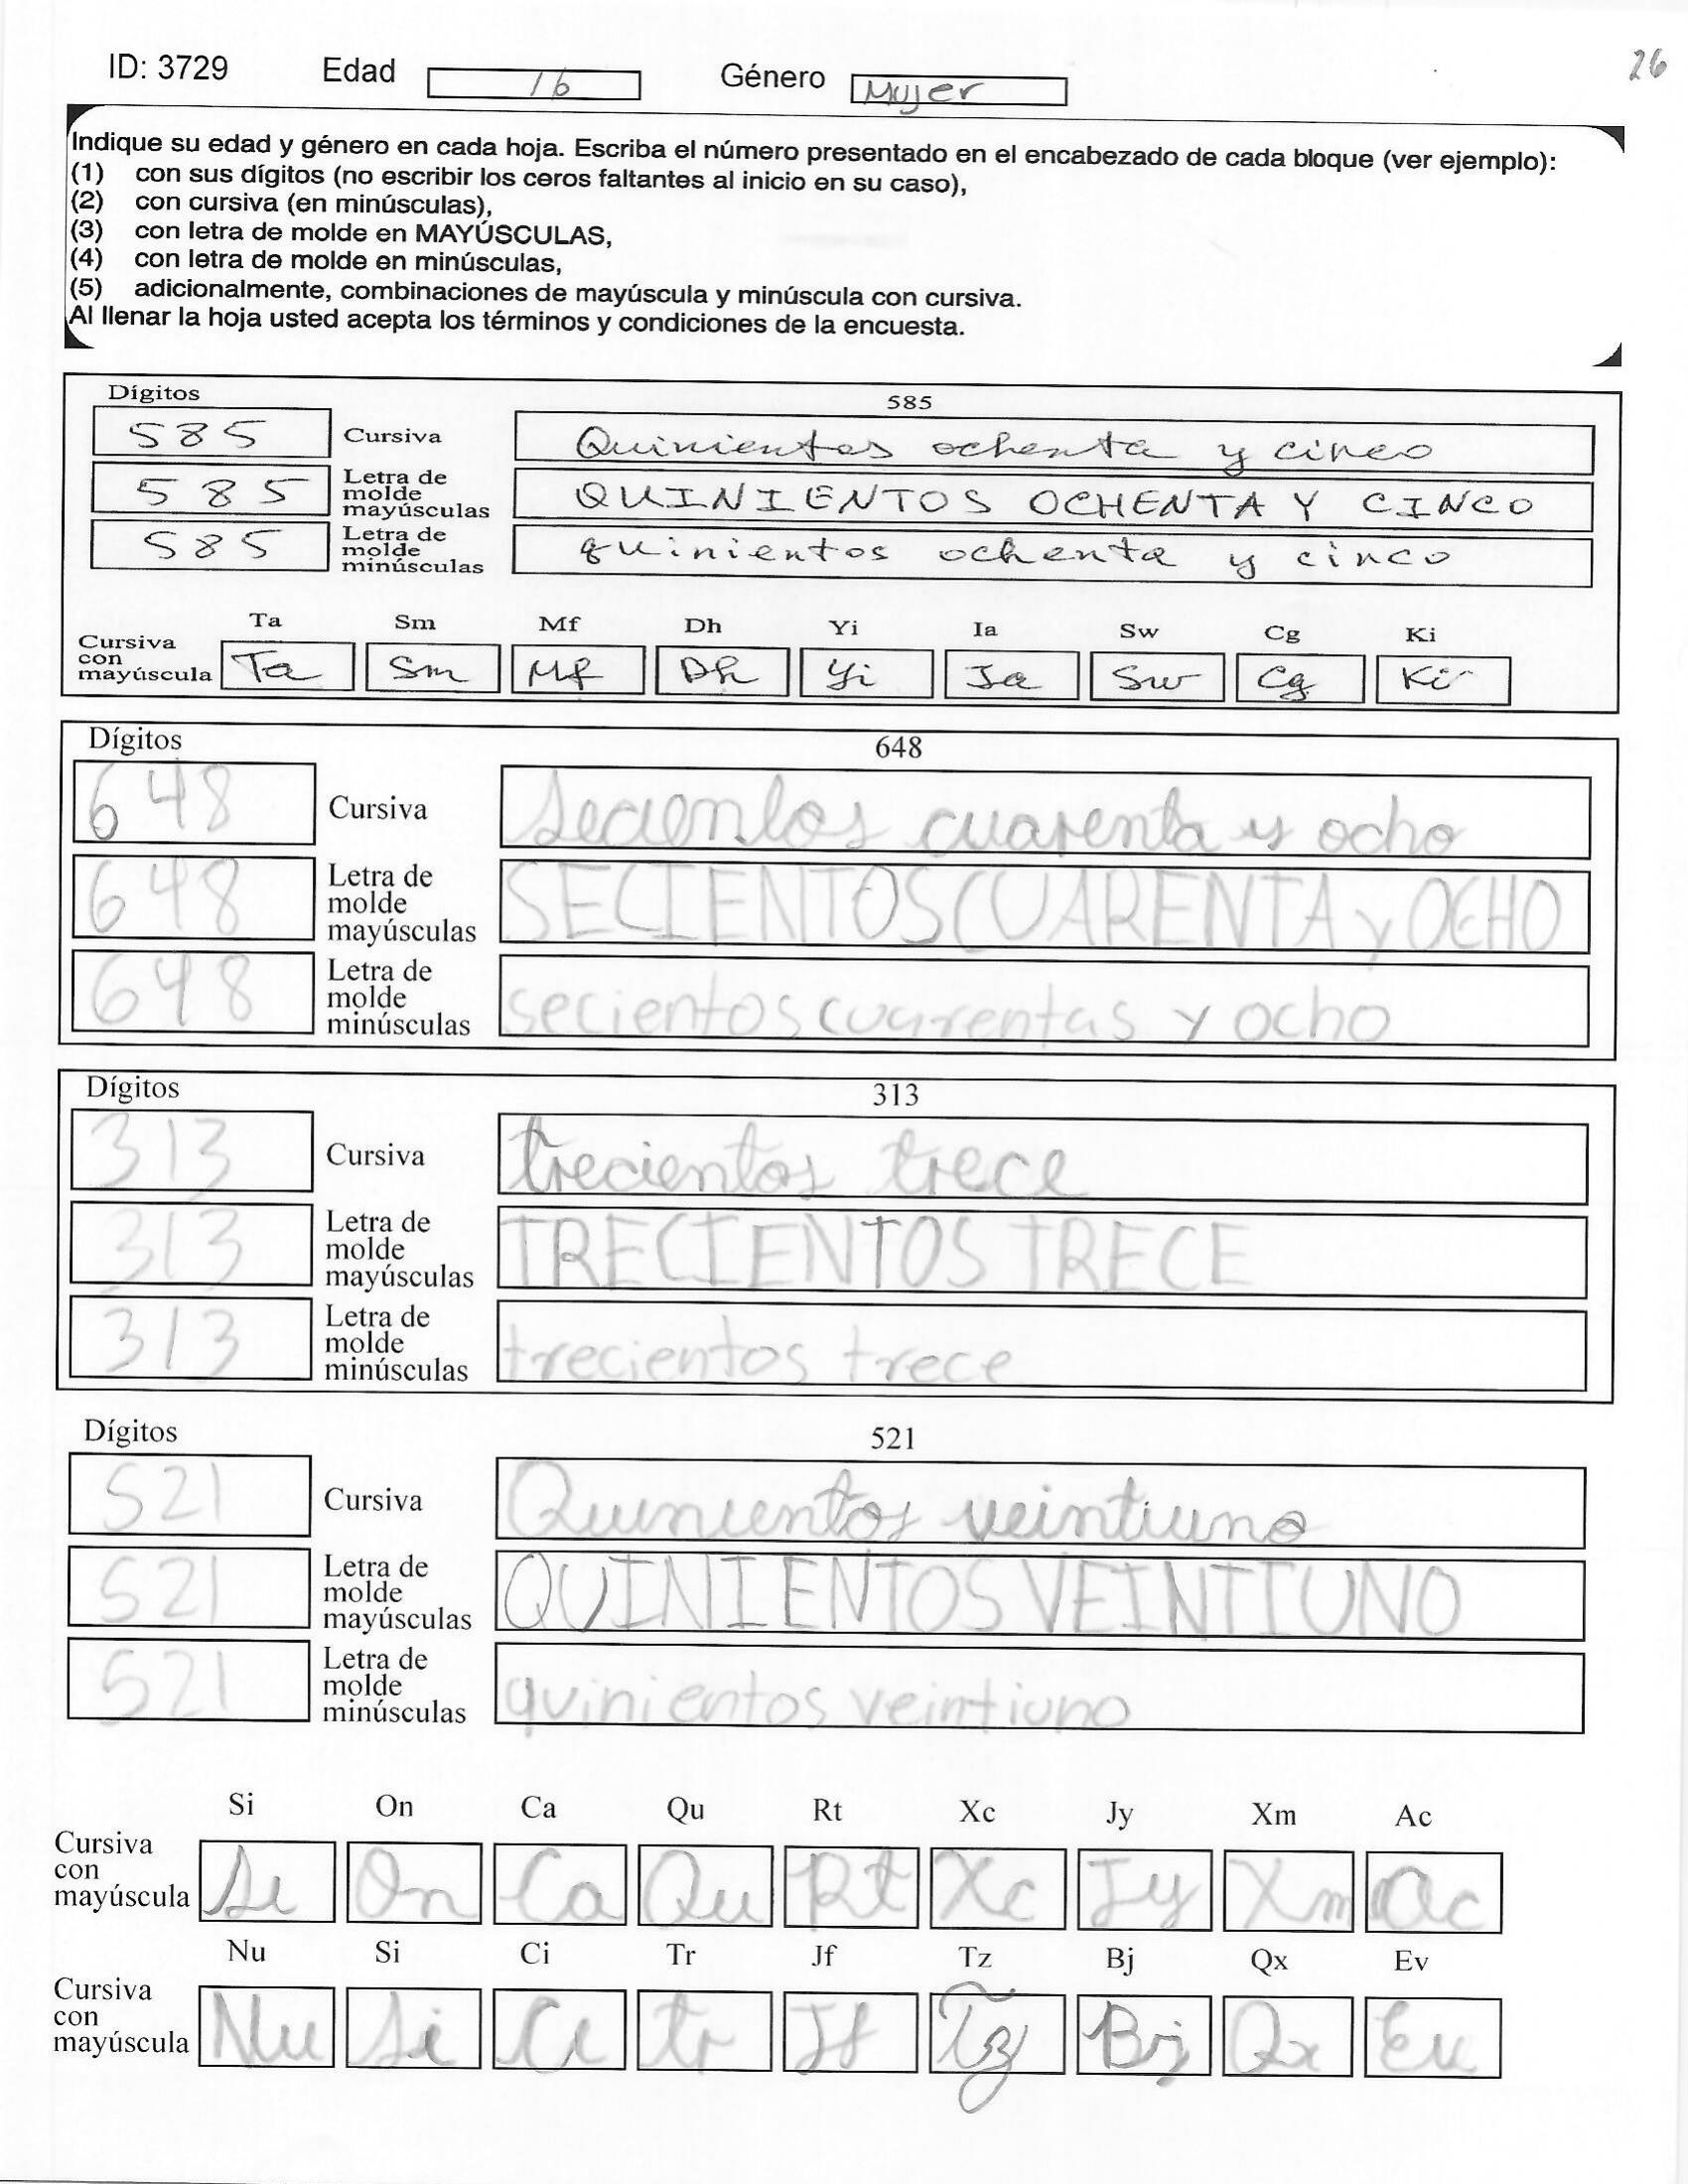 ID: 3729 Edad 16 Género Mujer 26
Indique su edad y género en cada hoja. Escriba el número presentado en el encabezado de cada bloque (ver ejemplo):
(1) con sus dígitos (no escribir los ceros faltantes al inicio en su caso),
(2) con cursiva (en minúsculas),
(3) con letra de molde en MAYÚSCULAS,
(4) con letra de molde en minúsculas,
(5) adicionalmente, combinaciones de mayúscula y minúscula con cursiva.
Al llenar la hoja usted acepta los términos y condiciones de la encuesta.
Dígitos 585
585 Cursiva Quinientos ochenta y cinco
585 Letra de molde mayúsculas QUINIENTOS OCHENTA Y CINCO
585 Letra de molde minúsculas quinientos ochenta y cinco
Ta Sm Mf Dh Yi Ia Sw Cg Ki
Cursiva con mayúscula Ta Sm Mf Dh Yi Ia Sw Cg Ki
Dígitos 648
648 Cursiva Secientos cuarenta y ocho
648 Letra de molde mayúsculas SECIENTOS CUARENTA y OCHO
648 Letra de molde minúsculas secientos cuarentas y ocho
Dígitos 313
313 Cursiva trecientos trece
313 Letra de molde mayúsculas TRECIENTOS TRECE
313 Letra de molde minúsculas trecientos trece
Dígitos 521
521 Cursiva Quinientos veintiuno
521 Letra de molde mayúsculas QUINIENTOS VEINTIUNO
521 Letra de molde minúsculas quinientos veintiuno
Si On Ca Qu Rt Xc Jy Xm Ac
Cursiva con mayúscula Si On Ca Qu Rt Xc Jy Xm Ac
Nu Si Ci Tr Jf Tz Bj Qx Ev
Cursiva con mayúscula Nu Si Ci Tr Jf Tz Bj Qx Ev